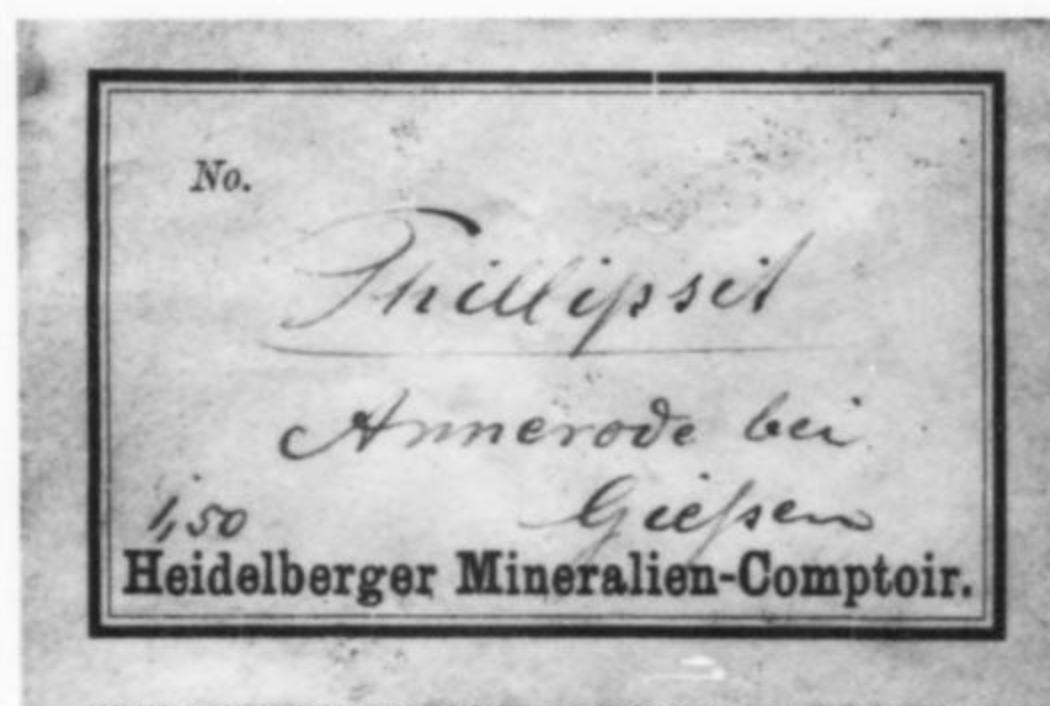 No.
Phillipsit
Annerode bei
Gießen
1,50
Heidelberger Mineralien-Comptoir.